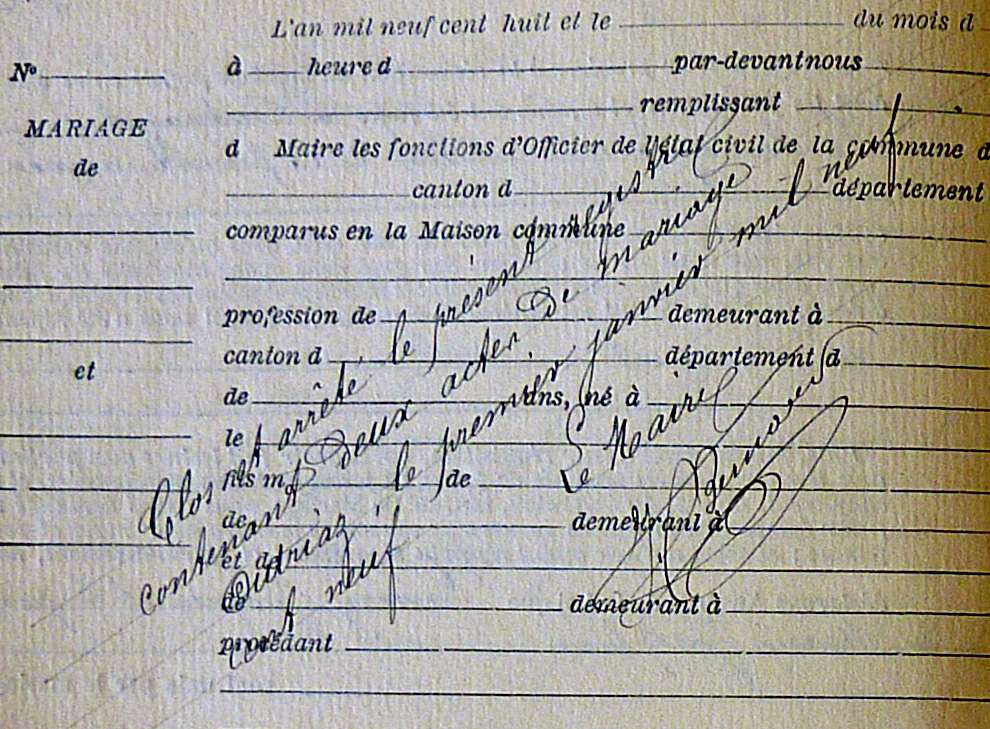 L'an mil neuf cent huit et le du mois d
No
à heure d par-devant nous
remplissant
MARIAGE
de
d Maire les fonctions d'Officier de l'état civil de la commune d
canton d département
comparus en la Maison commune
profession de demeurant à
canton d département d
et
de ans, né à
le
fils m de
de demeurant à
et de
de demeurant à
procédant
Clos et arrêté le présent registre
contenant deux actes de mariage
à le premier janvier mil neuf
cent neuf
Le Maire